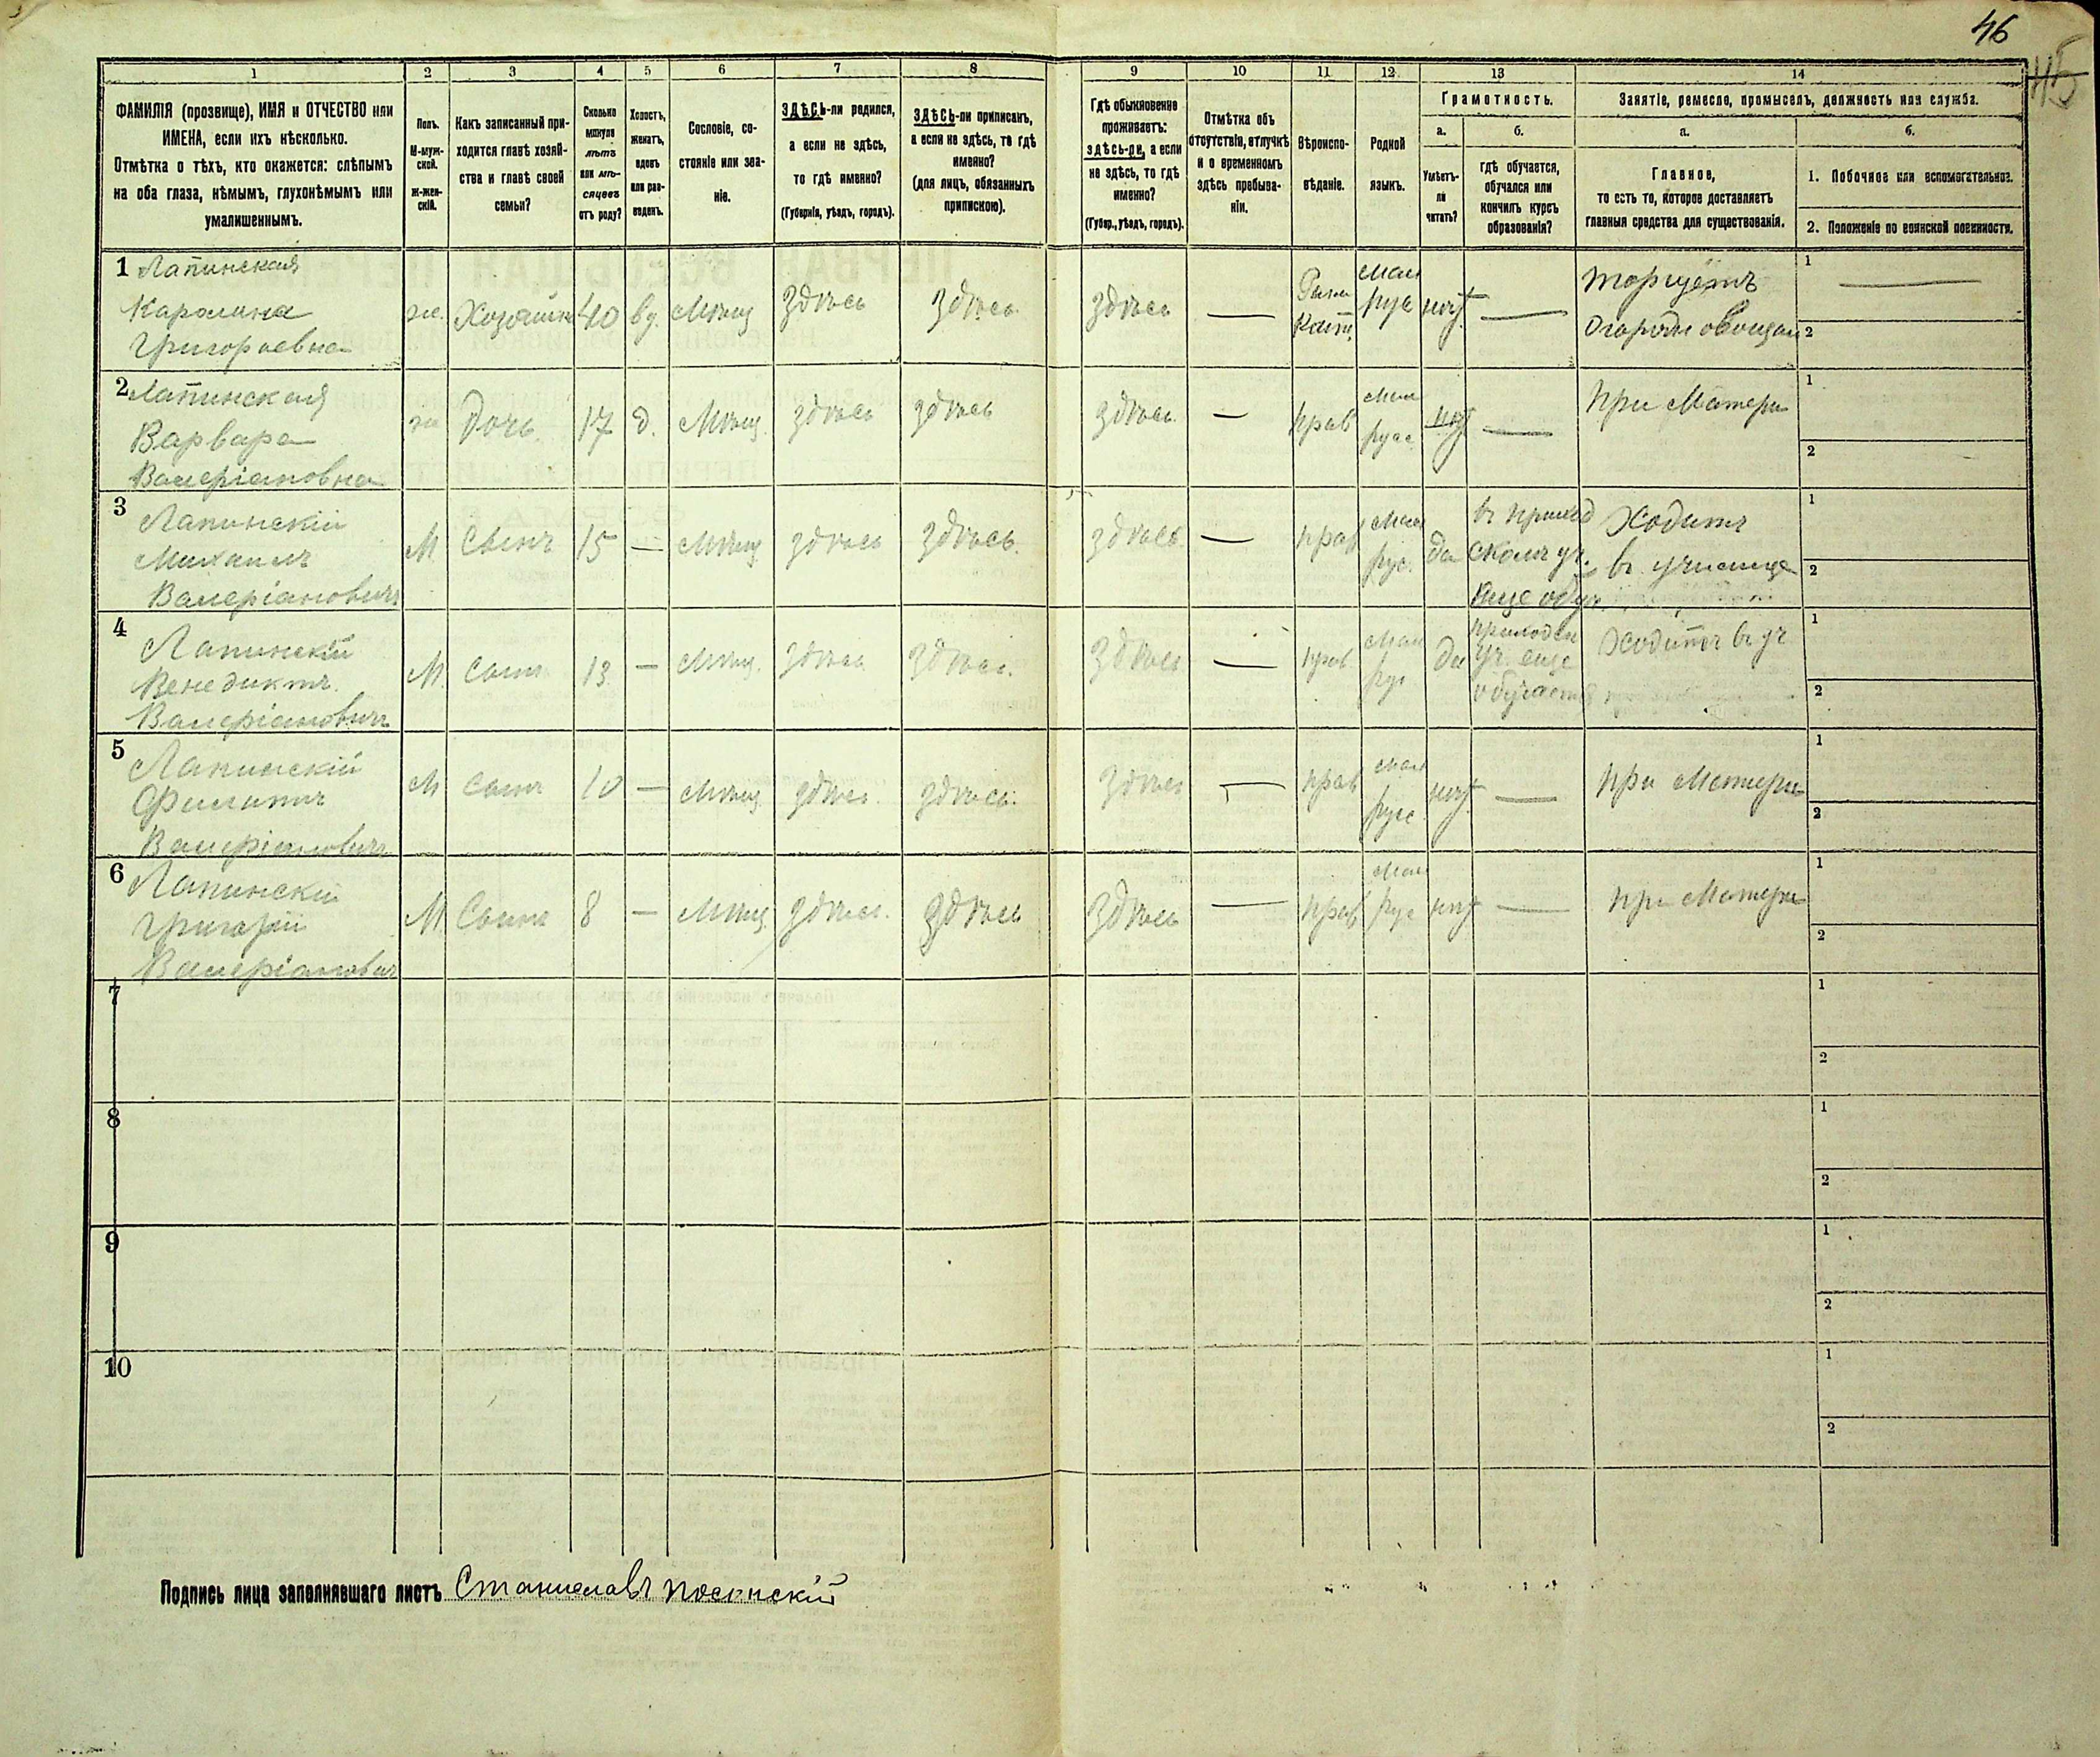 46
45
1
2
3
4
5
6
7
8
9
10
11
12
13
14
ФАМИЛІЯ (прозвище), ИМЯ и ОТЧЕСТВО или
ИМЕНА, если ихъ нѣсколько.
Отмѣтка о тѣхъ, кто окажется: слѣпымъ
на оба глаза, нѣмымъ, глухонѣмымъ или
умалишеннымъ.
Полъ.
М-муж-
ской.
Ж-жен-
скій.
Какъ записанный при-
ходится главѣ хозяй-
ства и главѣ своей
семьи?
Сколько
минуло
лѣтъ
или мѣ-
сяцевъ
отъ роду?
Холостъ,
женатъ,
вдовъ
или раз-
веденъ.
Сословіе, со-
стояніе или зва-
ніе.
ЗДѢСЬ-ли родился,
а если не здѣсь,
то гдѣ именно?
(Губернія, уѣздъ, городъ).
ЗДѢСЬ-ли приписанъ,
а если не здѣсь, то гдѣ
именно?
(для лицъ, обязанныхъ
припискою).
Гдѣ обыкновенно
проживаетъ:
здѣсь-ли, а если
не здѣсь, то гдѣ
именно?
(Губер., уѣздъ, городъ).
Отмѣтка объ
отсутствіи, отлучкѣ
и о временномъ
здѣсь пребыва-
ніи.
Вѣроиспо-
вѣданіе.
Родной
языкъ.
Грамотность.
а.
б.
Умѣетъ-
ли
читать?
гдѣ обучается,
обучался или
кончилъ курсъ
образованія?
Занятіе, ремесло, промыселъ, должность или служба.
а.
б.
Главное,
то есть то, которое доставляетъ
главныя средства для существованія.
1. Побочное или вспомогательное.
2. Положеніе по воинской повинности.
1 Лапинская
Каролина
Григорьевна
ж. Хозяйка 40 вд. Мѣщ здѣсь здѣсь. здѣсь — Рим Кат. Мал рус нѣт — торгуетъ
огородн овощами
1 —
2
2 Лапинская
Варвара
Валеріановна
ж Дочь. 17 д. Мѣщ. здѣсь здѣсь здѣсь. — прав Мал русс нѣт — при Матери
1
2
3 Лапинскій
Михаилъ
Валеріановичъ
М Сынъ 15 — Мѣщ здѣсь здѣсь. здѣсь. — прав Мал рус. да въ приход
Ходитъ
въ училище
1
2
4 Лапинскій
Венедиктъ
Валеріановичъ
М Сынъ 13 — Мѣщ. здѣсь здѣсь. здѣсь — прав Мал рус да приходск
уч. еще
обучается
Ходитъ въ уч
1
2
5 Лапинскій
Филиппъ
Валеріановичъ
М Сынъ 10 — Мѣщ здѣсь. здѣсь. здѣсь — прав Мал русс нѣт — при Матери
1
2
6 Лапинскій
Григорій
Валеріановичъ
М Сынъ 8 — Мѣщ здѣсь. здѣсь здѣсь — прав Мал рус нѣт — при Матери
1
2
7
1
2
8
1
2
9
1
2
10
1
2
Подпись лица заполнявшаго листъ Станиславъ